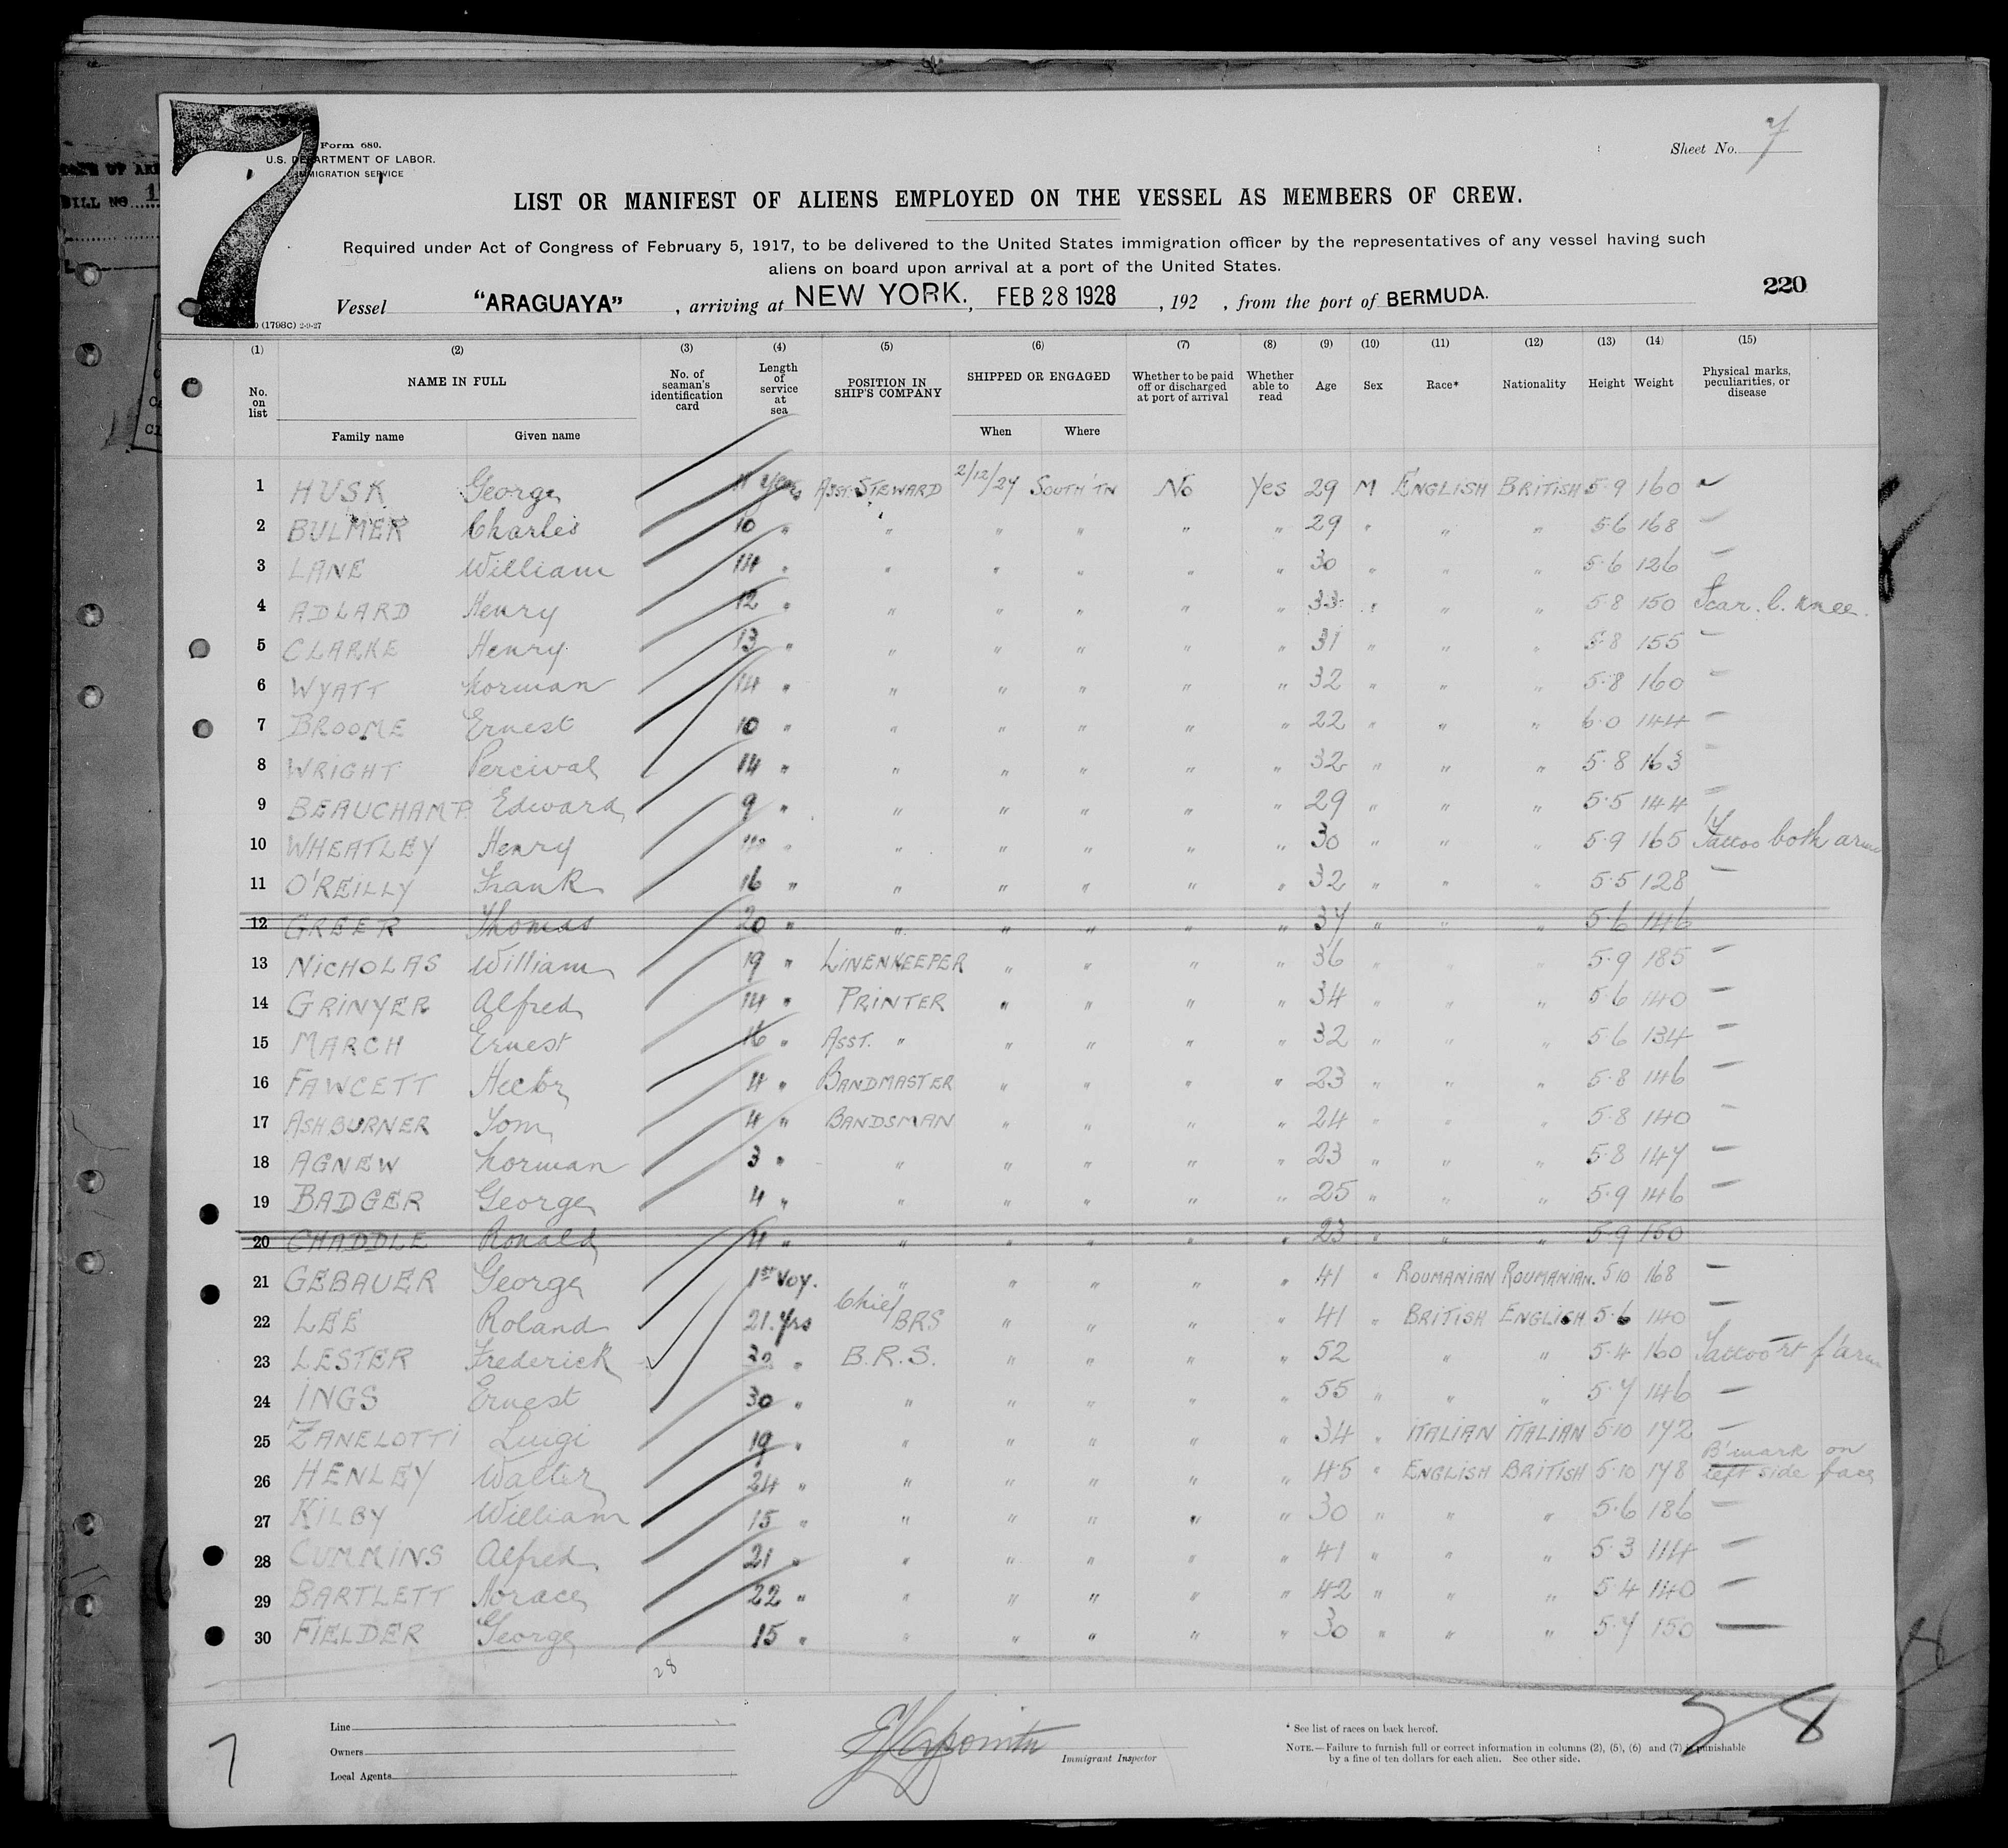 7
Form 680.
U.S. DEPARTMENT OF LABOR.
IMMIGRATION SERVICE
Sheet No. 7
LIST OR MANIFEST OF ALIENS EMPLOYED ON THE VESSEL AS MEMBERS OF CREW.
Required under Act of Congress of February 5, 1917, to be delivered to the United States immigration officer by the representatives of any vessel having such
aliens on board upon arrival at a port of the United States.
220
Vessel "ARAGUAYA", arriving at NEW YORK., FEB 28 1928, 192 , from the port of BERMUDA.
(1) (2) (3) (4) (5) (6) (7) (8) (9) (10) (11) (12) (13) (14) (15)
No. on list NAME IN FULL No. of seaman's identification card Length of service at sea POSITION IN SHIP'S COMPANY SHIPPED OR ENGAGED Whether to be paid off or discharged at port of arrival Whether able to read Age Sex Race* Nationality Height Weight Physical marks, peculiarities, or disease
Family name Given name When Where
1 HUSK George 11 yrs Asst. STEWARD 2/12/27 SOUTH'TN No Yes 29 M ENGLISH BRITISH 5·9 160
2 BULMER Charles 10 " " " " " " 29 " " " 5·6 168 –
3 LANE William 14 " " " " " " 30 " " " 5·6 126 –
4 ADLARD Henry 12 " " " " " " 33 " " " 5·8 150 Scar. l. knee.
5 CLARKE Henry 13 " " " " " " 31 " " " 5·8 155 –
6 WYATT Norman 14 " " " " " " 32 " " " 5·8 160 –
7 BROOME Ernest 10 " " " " " " 22 " " " 6·0 144 –
8 WRIGHT Percival 14 " " " " " " 32 " " " 5·8 163 –
9 BEAUCHAMP Edward 9 " " " " " " 29 " " " 5·5 144 –
10 WHEATLEY Henry " " " " " " 30 " " " 5·9 165 Tattoo both arms
11 O'REILLY Frank 16 " " " " " " 32 " " " 5·5 128 –
12 GREER Thomas 20 " " " " " " 37 " " " 5·6 146
13 NICHOLAS William 19 " LINENKEEPER " " " " 36 " " " 5·9 185 –
14 GRINYER Alfred 14 " PRINTER " " " " 34 " " " 5·6 140 –
15 MARCH Ernest 16 " ASST. " " " " " 32 " " " 5·6 134 –
16 FAWCETT Hector 4 " BANDMASTER " " " " 23 " " " 5·8 146 –
17 ASHBURNER Tom 4 " BANDSMAN " " " " 24 " " " 5·8 140 –
18 AGNEW Norman 3 " " " " " " 23 " " " 5·8 147 –
19 BADGER George 4 " " " " " " 25 " " " 5·9 146 –
20 CHADDLE Ronald 4 " " " " " " 23 " " " 5·9 150
21 GEBAUER George 1st Voy. " " " " " 41 " ROUMANIAN ROUMANIAN. 5·10 168 –
22 LEE Roland 21. Yrs Chief BRS " " " " 41 " BRITISH ENGLISH 5·6 140 –
23 LESTER Frederick " B.R.S. " " " " 52 " " 5·4 160 Tattoo rt f'arm
24 INGS Ernest 30 " " " " " " 55 " " " 5·7 146 –
25 ZANELOTTI Luigi 19 " " " " " " 34 " ITALIAN ITALIAN 5·10 172 –
26 HENLEY Walter 24 " " " " " " 45 " ENGLISH BRITISH 5·10 178 B'mark on left side face
27 KILBY William 15 " " " " " " 30 " " " 5·6 186 –
28 CUMMINS Alfred 21 " " " " " " 41 " " " 5·3 114 –
29 BARTLETT Horace 22 " " " " " " 42 " " " 5·4 140 –
30 FIELDER George 15 " " " " " " 30 " " " 5·7 150 –
28
Line
Owners
Local Agents
Immigrant Inspector
* See list of races on back hereof.
NOTE.—Failure to furnish full or correct information in columns (2), (5), (6) and (7) is punishable
by a fine of ten dollars for each alien. See other side.
28
7